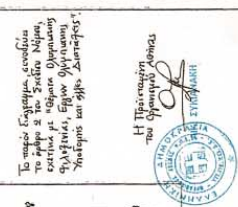 Το παρόν διάγραμμα συνοδεύει
το άρθρο 2 του Σχεδίου Νόμου,
σχετικά με "Θέματα Ολυμπιακής
Φιλοξενίας, Έργων Ολυμπιακής
Υποδομής και άλλες Διατάξεις".
Η Προϊσταμένη
του
ΕΛΛΗΝΙΚΗ ΔΗΜΟΚΡΑΤΙΑ